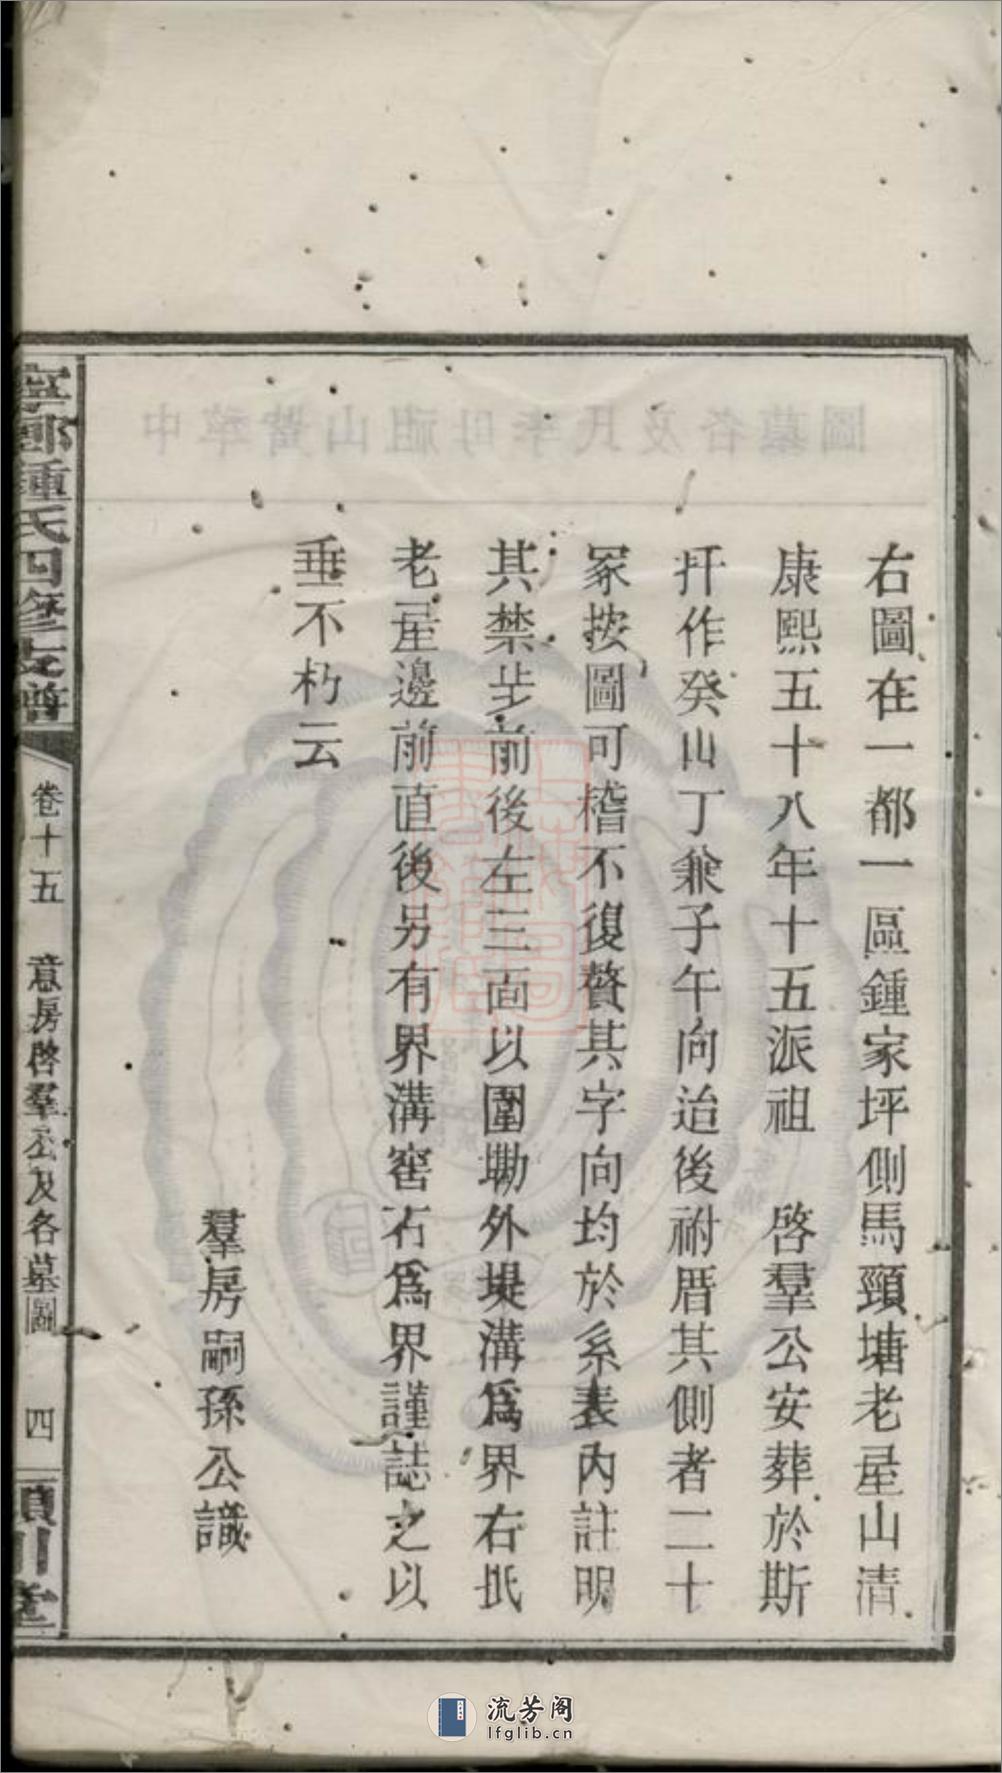 右圖在一都一區鍾家坪側馬頸塘老屋山清
康熙五十八年十五派祖 啓羣公安葬於斯
扦作癸山丁兼子午向迨後祔厝其側者二十
冢按圖可稽不復贅其字向均於系表內註明
其禁步前後左三面以圍墈外堤溝爲界右抵
老屋邊前直後另有界溝窖石爲界謹誌之以
垂不朽云
羣房嗣孫公識
寧鄉鍾氏四修支譜 卷十五 意房啓羣公及各墓圖 四 潁川堂
流芳阁
lfglib.cn